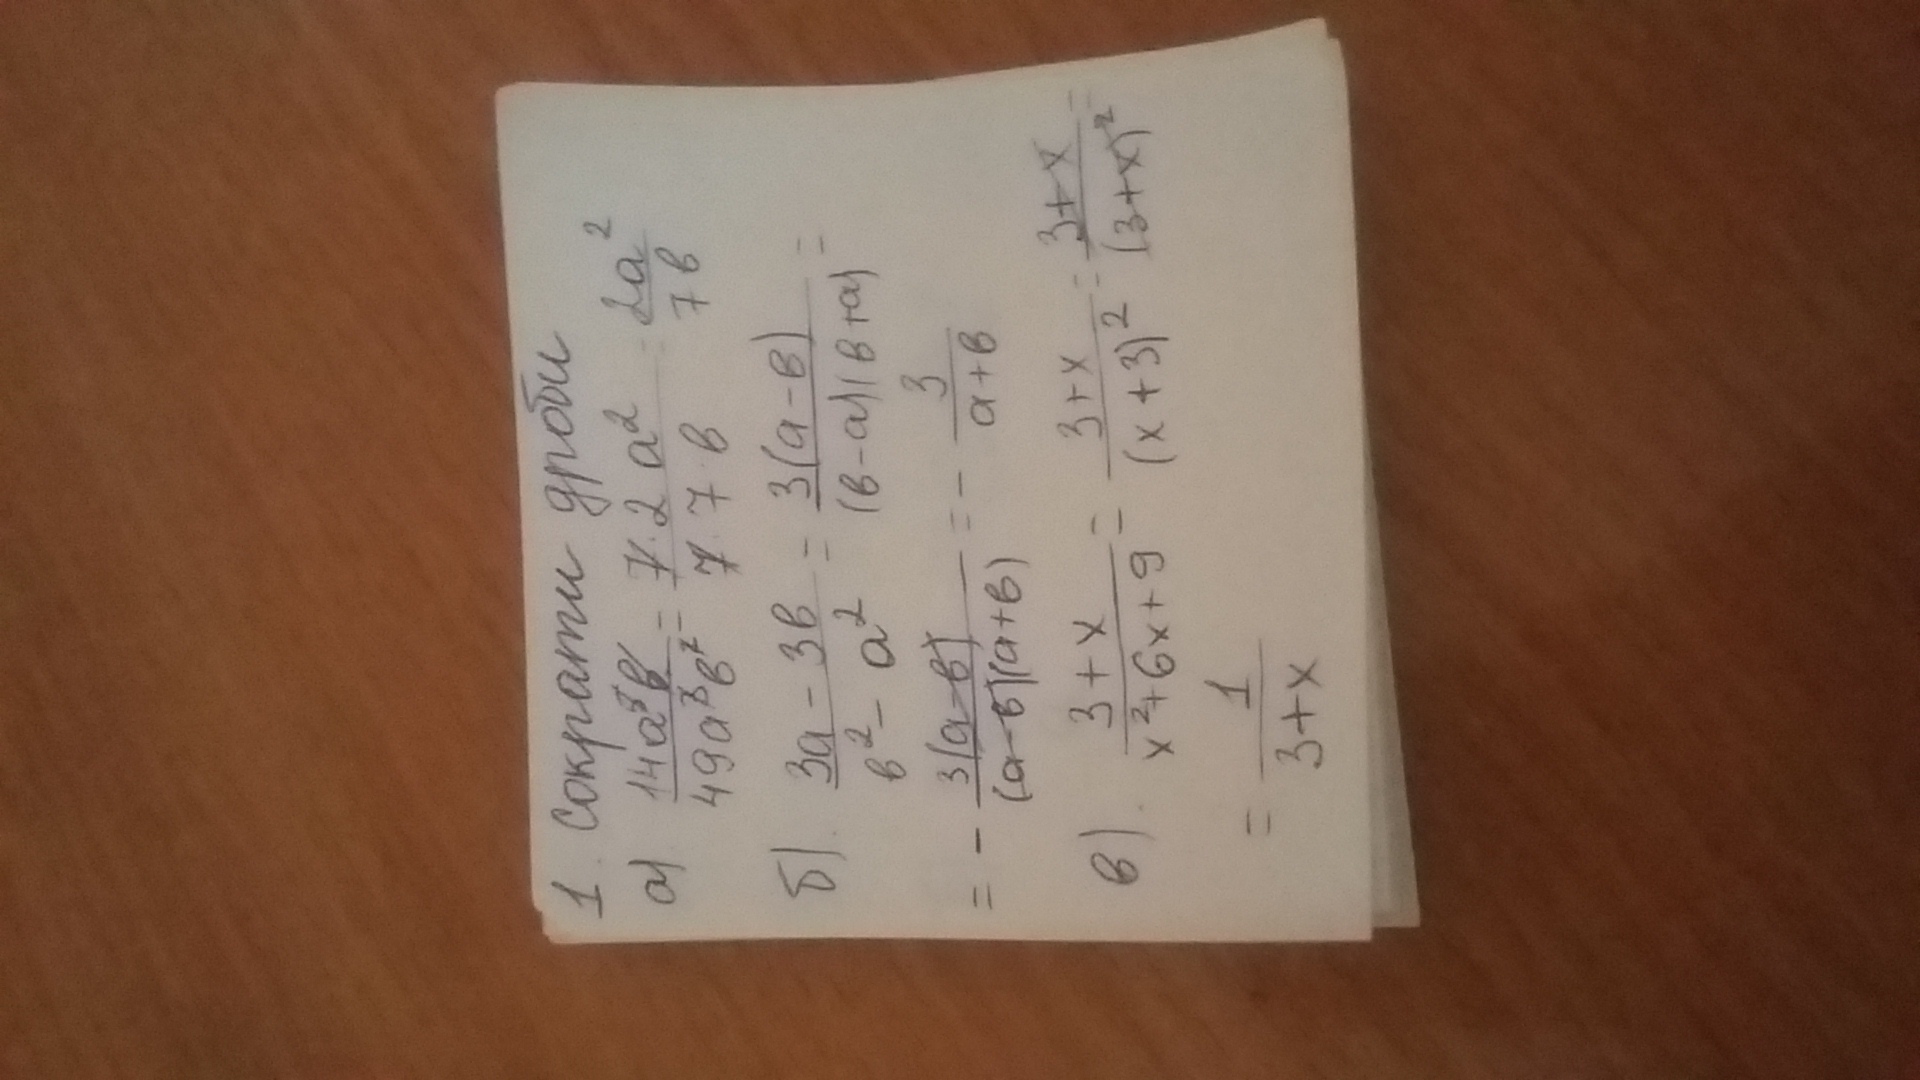 1. Сократи дроби
а) 14a⁵b / 49a³b² = 7·2a² / 7·7·b = 2a² / 7b
б). 3a - 3b / b² - a² = 3(a - b) / (b - a)(b + a) =
= - 3(a - b) / (a - b)(a + b) = - 3 / a + b
в). 3 + x / x² + 6x + 9 = 3 + x / (x + 3)² = 3 + x / (3 + x)² =
= 1 / 3 + x